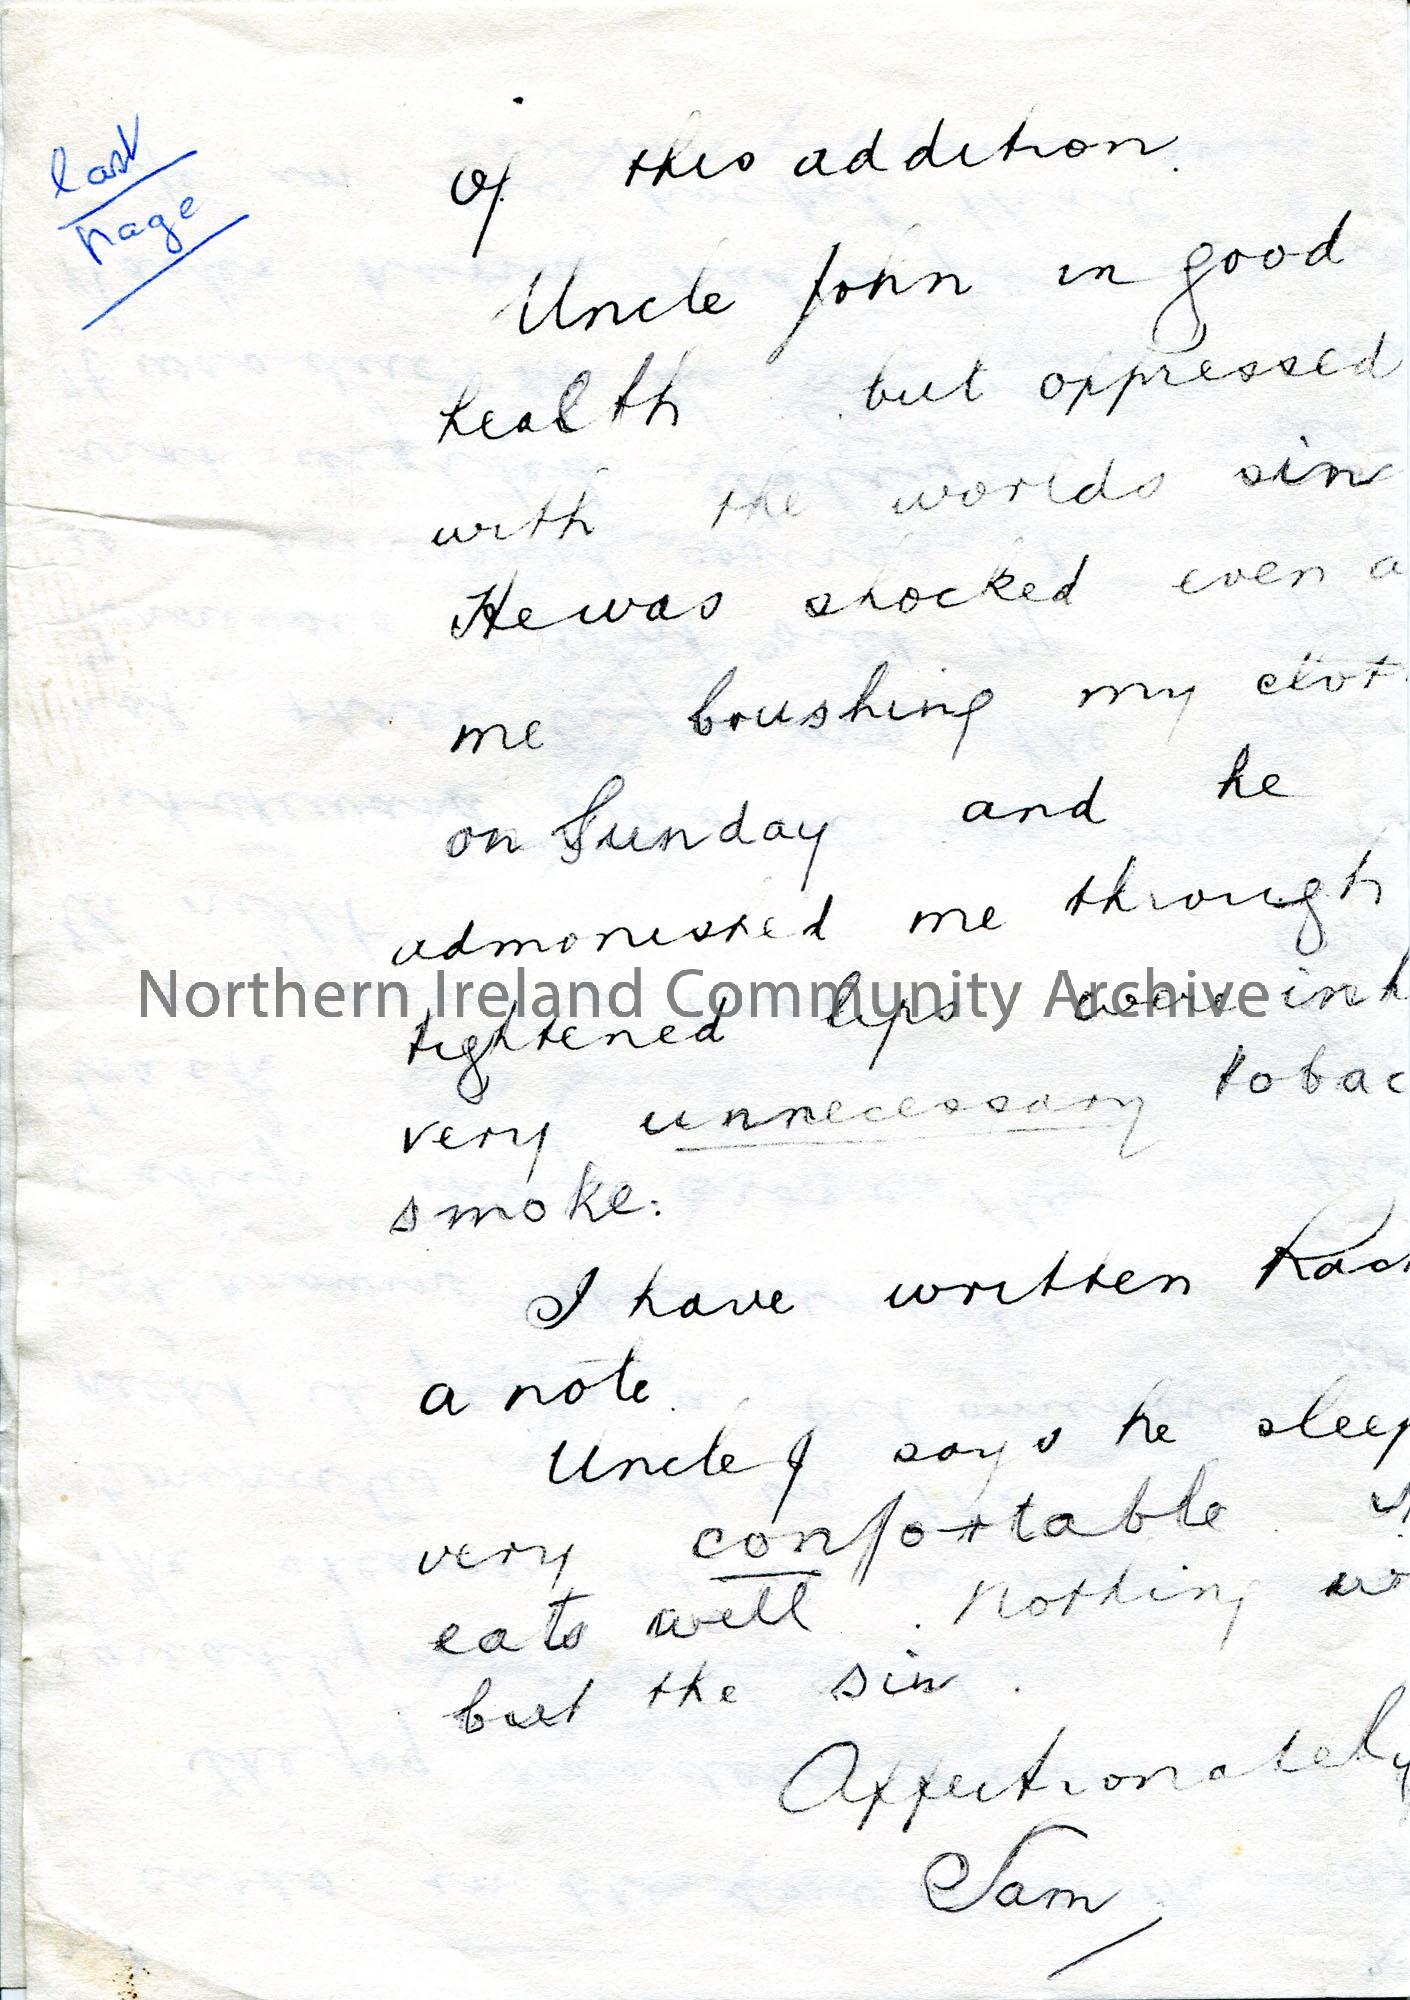 last
page
of this addition.
Uncle John in good
health but oppressed
with the worlds sin
He was shocked even a
me brushing my cloth
on Sunday and he
admonished me through
tightened lips were inh
very unnecessary tobac
smoke:
I have written Rach
a note.
Uncle J says he sleep
very confortable.
eats well. Nothing wo
but the sin.
Affectionately
Sam
Northern Ireland Community Archive